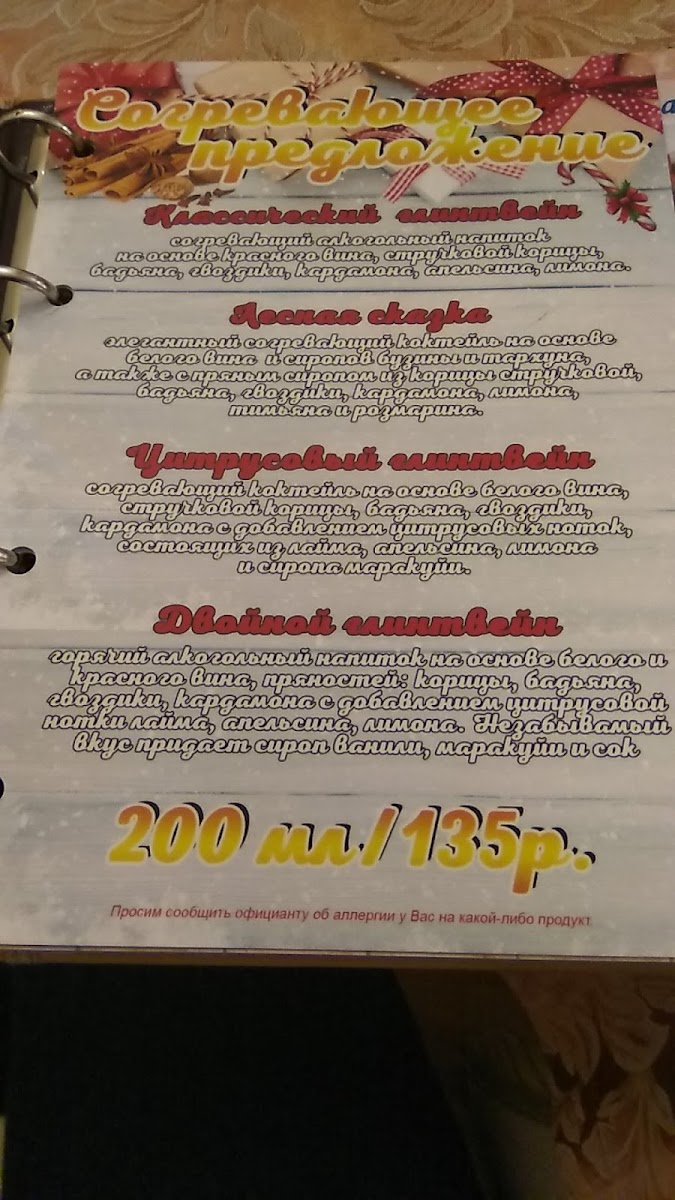 Согревающее
предложение
Классический глинтвейн
согревающий алкогольный напиток
на основе красного вина, стручковой корицы,
бадьяна, гвоздики, кардамона, апельсина, лимона.
Лесная сказка
элегантный согревающий коктейль на основе
белого вина и сиропов бузины и тархуна,
а также с пряным сиропом из корицы стручковой,
бадьяна, гвоздики, кардамона, лимона,
тимьяна и розмарина.
Цитрусовый глинтвейн
согревающий коктейль на основе белого вина,
стручковой корицы, бадьяна, гвоздики,
кардамона с добавлением цитрусовых ноток,
состоящих из лайма, апельсина, лимона
и сиропа маракуйи.
Двойной глинтвейн
горячий алкогольный напиток на основе белого и
красного вина, пряностей: корицы, бадьяна,
гвоздики, кардамона с добавлением цитрусовой
нотки лайма, апельсина, лимона. Незабываемый
вкус придает сироп ванили, маракуйи и сок
200 мл/135р.
Просим сообщить официанту об аллергии у Вас на какой-либо продукт.